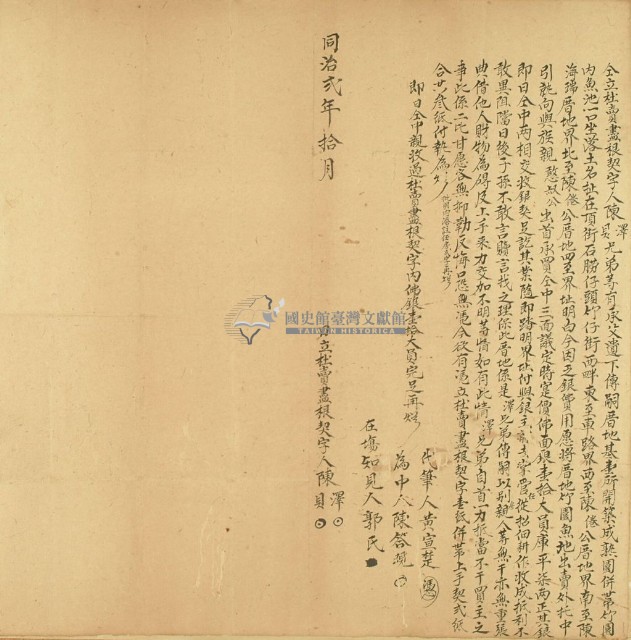 仝立杜賣盡根契字人陳澤貝兄弟等有承父遺下傳嗣厝地基壹所開築成熟園併帶竹圍
內魚池一口坐落土名址在頂街石勝仔頭竹仔街西畔東至車路界西至陳倦公厝地界南至陳
海瑞厝地界北至陳倦公厝地四至界址明白今因乏銀費用愿將厝地竹園魚池出賣外托中
引就向與族親憨叔公出首承買仝中三面議定時定價佛面銀壹拾大員庫平柒兩正其銀
即日仝中兩相交收銀契足訖其業隨即踏明界址付與銀主前去掌管從招佃耕作收成抵利不
敢異阻當日後子孫不敢言贖言找之理保此厝地係是澤兄弟傳嗣以別親人等無干亦無重張
典借他人財物為碍及上手來力交加不明等情如有此情澤兄弟自首一力抵當不干買主之
事此係二比甘愿各無抑勒反悔口恐無憑今欲有憑立杜賣盡根契字壹紙併帶上手契弍紙
合共叁紙付執為炤
即日仝中親收過杜賣盡根契字內佛銀壹拾大員完足再炤
代筆人黃宣楚
為中人陳
在塲知見人郭氏
同治弍年拾月 日立杜賣盡根契字人陳澤貝
國史館臺灣文獻館
TAIWAN HISTORICA